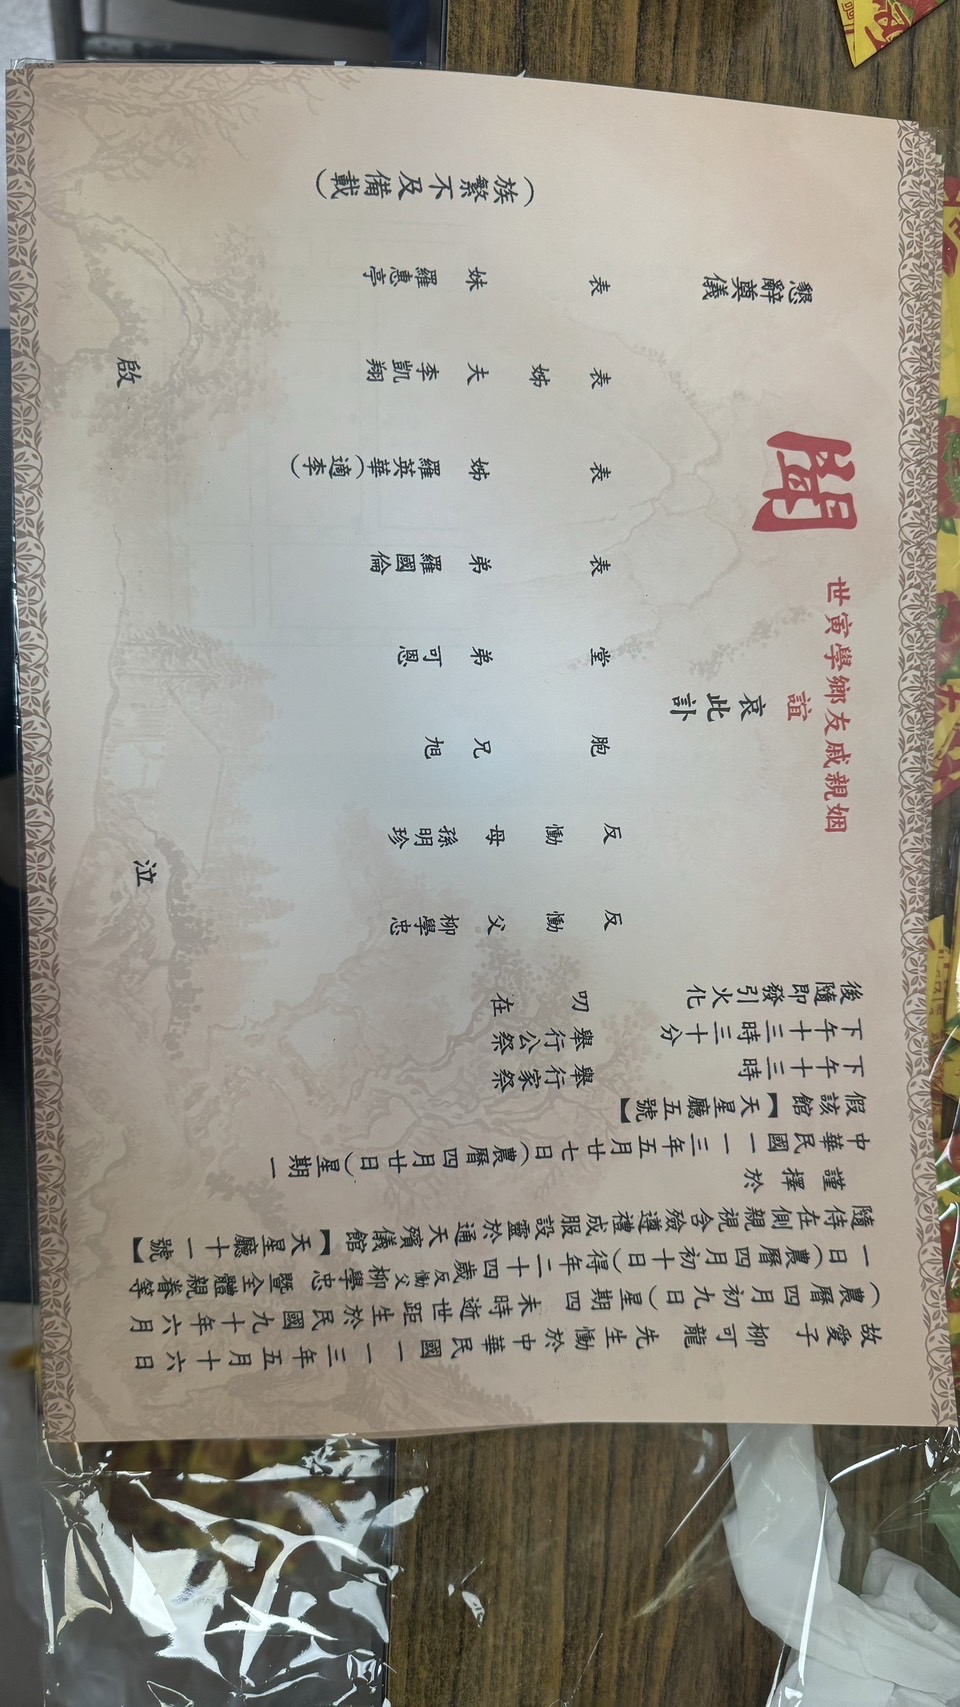 故愛子柳可龍先生慟於中華民國一一三年五月十六日
(農曆四月初九日)星期四未時逝世距生於民國九十年六月
一日(農曆四月初十日)得年二十四歲反慟父柳學忠暨全體親眷等
隨侍在側親視含殮遵禮成服設靈於通天殯儀館【天星廳十一號】
謹擇於
中華民國一一三年五月廿七日(農曆四月廿日)星期一
假該館【天星廳五號】
下午十三時 舉行家祭
下午十三時三十分 舉行公祭
後隨即發引火化
叨在
姻親戚友鄉學寅世
誼
哀此訃
聞
反慟父柳學忠
反慟母孫明珍
泣
胞兄旭
堂弟可恩
表弟羅國倫
表姊羅英華(適李)
表姊夫李凱翔
啟
表妹羅惠亭
懇辭奠儀
(族繁不及備載)